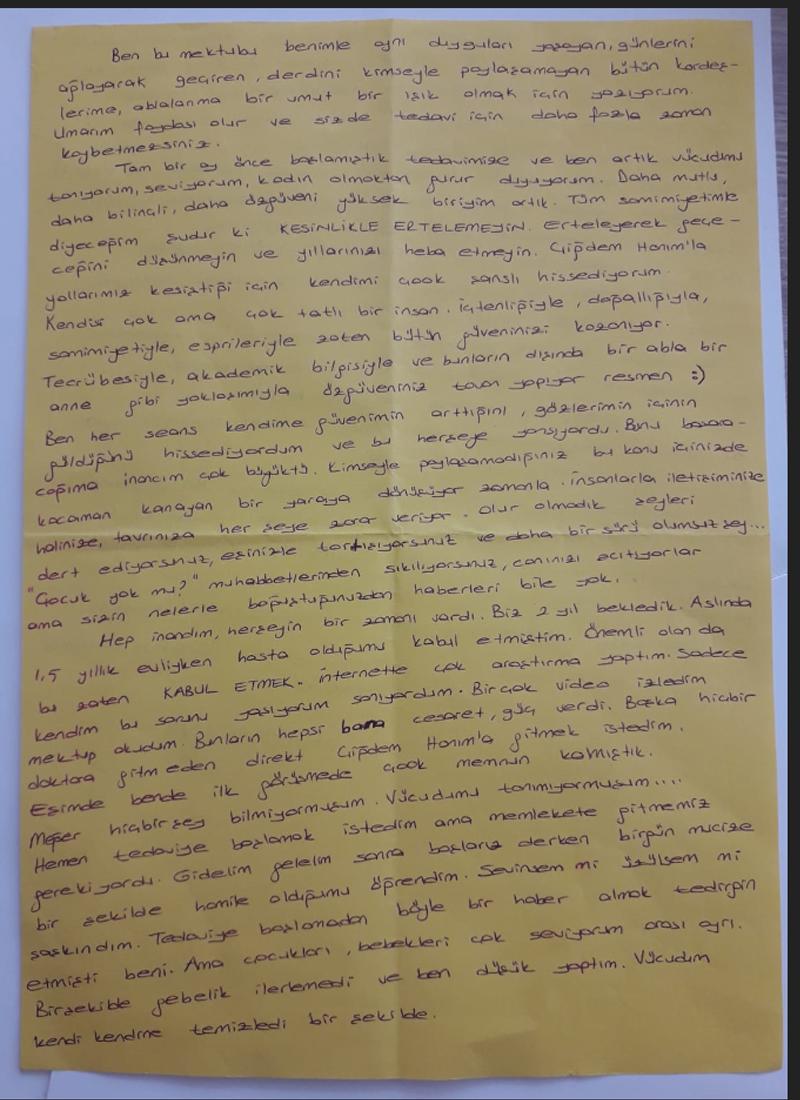 Ben bu mektubu benimle aynı duyguları yaşayan, günlerini
ağlayarak geçiren, derdini kimseyle paylaşamayan bütün kardeş-
lerime, ablalarıma bir umut bir ışık olmak için yazıyorum.
Umarım faydası olur ve sizde tedavi için daha fazla zaman
kaybetmezsiniz.
Tam bir ay önce başlamıştık tedavimize ve ben artık vücudumu
tanıyorum, seviyorum, kadın olmaktan gurur duyuyorum. Daha mutlu,
daha bilinçli, daha özgüveni yüksek biriyim artık. Tüm samimiyetimle
diyeceğim şudur ki KESİNLİKLE ERTELEMEYİN. Erteleyerek geçe-
ceğini düşünmeyin ve yıllarınızı heba etmeyin. Çiğdem Hanım'la
yollarımız kesiştiği için kendimi çook şanslı hissediyorum.
Kendisi çok ama çok tatlı bir insan. İçtenliğiyle, doğallığıyla,
samimiyetiyle, esprileriyle zaten bütün güveninizi kazanıyor.
Tecrübesiyle, akademik bilgisiyle ve bunların dışında bir abla bir
anne gibi yaklaşımıyla özgüveniniz tavan yapıyor resmen :)
Ben her seans kendime güvenimin arttığını, gözlerimin içinin
güldüğünü hissediyordum ve bu herşeye yansıyordu. Bunu başara-
cağıma inancım çok büyüktü. Kimseyle paylaşamadığınız bu konu içinizde
kocaman kanayan bir yaraya dönüşüyor zamanla. İnsanlarla iletişiminize
halinize, tavrınıza her şeye zarar veriyor. Olur olmadık şeyleri
dert ediyorsunuz, eşinizle tartışıyorsunuz ve daha bir sürü olumsuz şey...
"Çocuk yok mu?" muhabbetlerinden sıkılıyorsunuz, canınızı acıtıyorlar
ama sizin nelerle boğuştuğunuzdan haberleri bile yok.
Hep inandım, herşeyin bir zamanı vardı. Biz 2 yıl bekledik. Aslında
1,5 yıllık evliyken hasta olduğumu kabul etmiştim. Önemli olan da
bu zaten KABUL ETMEK. İnternette çok araştırma yaptım. Sadece
kendim bu sorunu yaşıyorum sanıyordum. Birçok video izledim
mektup okudum. Bunların hepsi bana cesaret, güç verdi. Başka hiçbir
doktora gitmeden direkt Çiğdem Hanım'a gitmek istedim.
Eşimde bende ilk görüşmede çook memnun kalmıştık.
Meğer hiçbir şey bilmiyormuşum. Vücudumu tanımıyormuşum....
Hemen tedaviye başlamak istedim ama memlekete gitmemiz
gerekiyordu. Gidelim gelelim sonra başlarız derken birgün mucize
bir şekilde hamile olduğumu öğrendim. Sevinsem mi üzülsem mi
şaşkındım. Tedaviye başlamadan böyle bir haber almak tedirgin
etmişti beni. Ama çocukları, bebekleri çok seviyorum orası ayrı.
Birşekilde gebelik ilerlemedi ve ben düşük yaptım. Vücudum
kendi kendine temizledi bir şekilde.